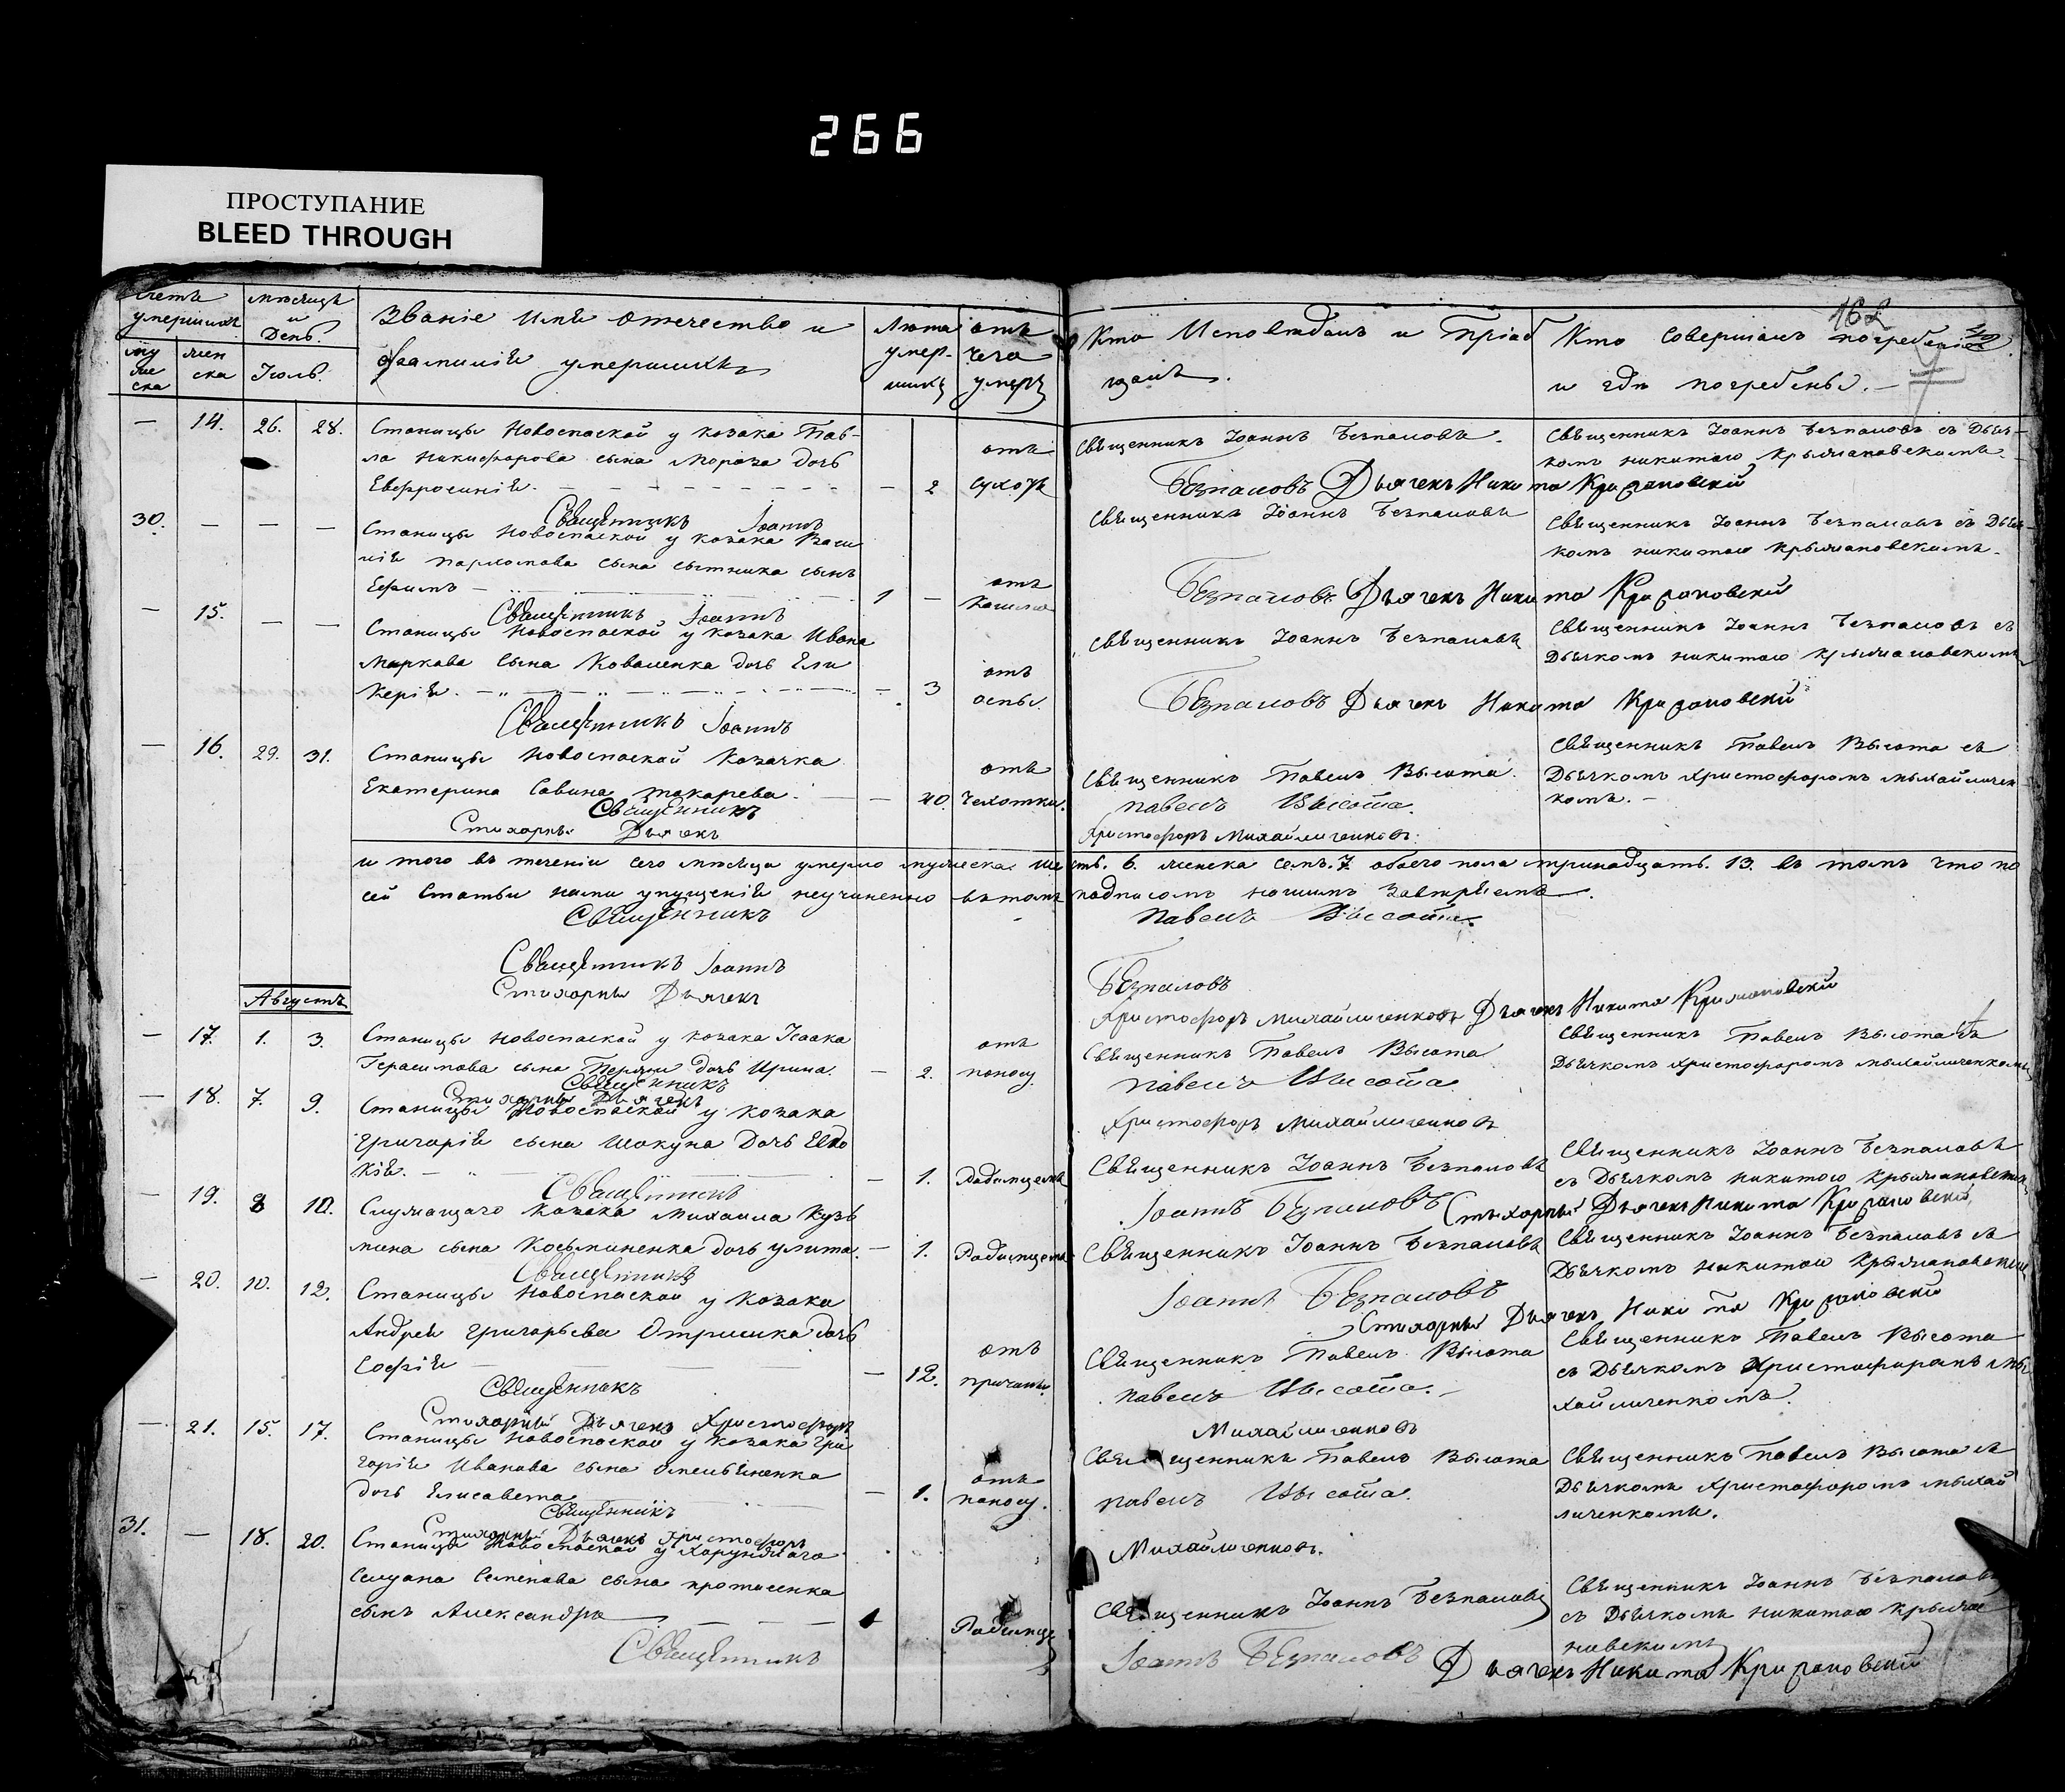 266
ПРОСТУПАНИЕ
BLEED THROUGH
162
Счетъ умершихъ
муже ска
жен ска
мѣсяцъ и День.
Іюль.
Званіе Имя отечество и
фамилія умершихъ
Лѣта умер-шихъ
отъ чего умеръ
Кто Исповѣдалъ и Пріоб
щалъ.
Кто Совершалъ погребеніе
и гдѣ погребены.
— 14. 26. 28. Станицы Новоспаской у козака Пав-
ла Никифорова сына Мороза дочь
Евфросинія. — 2 отъ сухотъ
Священникъ Іоаннъ Безпаловъ.
Священникъ Іоаннъ Безпаловъ съ Дьяч-
комъ никитою Крыжановскимъ.
Священникъ Іоаннъ Безпаловъ Дьячекъ Никита Крижановскій
30. — — — Станицы Новоспаской у козака Васи
лія сына сытника сынъ
Ефимъ 1 — отъ кашлю
Священникъ Іоаннъ Безпаловъ
Священникъ Іоаннъ Безпаловъ съ Дьяч-
комъ никитою крыжановскимъ.
Священникъ Іоаннъ Безпаловъ Дьячекъ Никита Крижановскій
— 15. — — Станицы Новоспаской у козака Ивана
Маркова сына Коваленка дочь Гли
керія. — 3 отъ оспы.
Священникъ Іоаннъ Безпаловъ
Священникъ Іоаннъ Безпаловъ съ
Дьячкомъ никитою крыжановскимъ
Священникъ Іоаннъ Безпаловъ Дьячекъ Никита Крижановскій
— 16. 29. 31. Станицы Новоспаской Козачка
Екатерина Савина токарева. — 40. отъ чехотки.
Священникъ Павелъ Высота.
Священникъ Павелъ Высота съ
Дьячкомъ Христофоромъ михайличен
комъ.
Священникъ Павелъ Высота.
Стихорный Дьячекъ Христофоръ Михайличенковъ.
и того въ теченіи сего мѣсяца умерло мужеска шесть. 6. женска семь. 7. обоего пола тринадцать. 13. въ томъ что по
сей Статьи нами упущенія неучиненно въ томъ подписомъ нашимъ завѣряемъ.
Священникъ Павелъ Высота.
Священникъ Іоаннъ Безпаловъ
Стихорный Дьячекъ Христофоръ Михайличенковъ Дьячекъ Никита Крижановскій
Августъ
— 17. 1. 3. Станицы Новоспаской у козака Исаака
Герасимова сына дочь Ирина. — 2. отъ поносу.
Священникъ Павелъ Высота
Священникъ Павелъ Высота съ
Дьячкомъ Христофоромъ михайличенкомъ
Священникъ Павелъ Высота
Стихорный Дьячекъ Христофоръ Михайличенковъ
— 18. 7. 9. Станицы Новоспаской у козака
Григорія сына Шокуна Дочь Евдо
кія. — 1. Родимцемъ
Священникъ Іоаннъ Безпаловъ
Священникъ Іоаннъ Безпаловъ
съ Дьячкомъ никитою Крыжановским
Священникъ Іоаннъ Безпаловъ Стихорный Дьячекъ Никита Крижановскій
— 19. 8 10. Служащаго Козака Михаила Кузь
мина сына Косьминенка дочь улита. — 1. Родимцемъ
Священникъ Іоаннъ Безпаловъ
Священникъ Іоаннъ Безпаловъ съ
Дьячкомъ никитою Крыжановским
Священникъ Іоаннъ Безпаловъ
Стихорный Дьячекъ Никита Крижановскій
— 20. 10. 12. Станицы Новоспаской у Козака
Андрея Григорьева Отришка дочь
Софія — 12. отъ причины.
Священникъ Павелъ Высота
Священникъ Павелъ Высота
съ Дьячкомъ Христофоромъ ми
хайличенкомъ.
Священникъ Павелъ Высота.
Стихорный Дьячекъ Христофоръ Михайличенковъ
— 21. 15. 17. Станицы Новоспаской у Козака Гри
горія Иванова сына Омельяненка
дочь Елисавета — 1. отъ поносу.
Священникъ Павелъ Высота
Священникъ Павелъ Высота съ
Дьячкомъ Христофоромъ михай
личенкомъ.
Священникъ Павелъ Высота.
Стихорный Дьячекъ Христофоръ Михайличенковъ.
31. — 18. 20. Станицы Новоспаской у Хорунжаго
Семенова сына протасенка
сынъ Александръ 1 Родимце
Священникъ Іоаннъ Безпаловъ
Священникъ Іоаннъ Безпаловъ
съ Дьячкомъ никитою крыжа
новскимъ
Священникъ Іоаннъ Безпаловъ Дьячекъ Никита Крижановскій